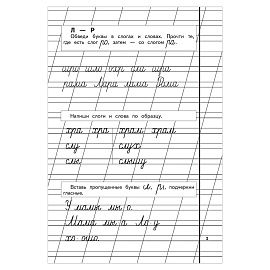 Л — Р
Обведи буквы в слогах и словах. Прочти те,
где есть слог ро, затем — со слогом ра.
рама Лара лама Рама
Напиши слоги и слова по образцу.
хра хра храм храм
слу слух
слы слышу
Вставь пропущенные буквы л, р, подчеркни
гласные.
У мамы мы о.
Мама мы а Ла у
хо ошо.
3